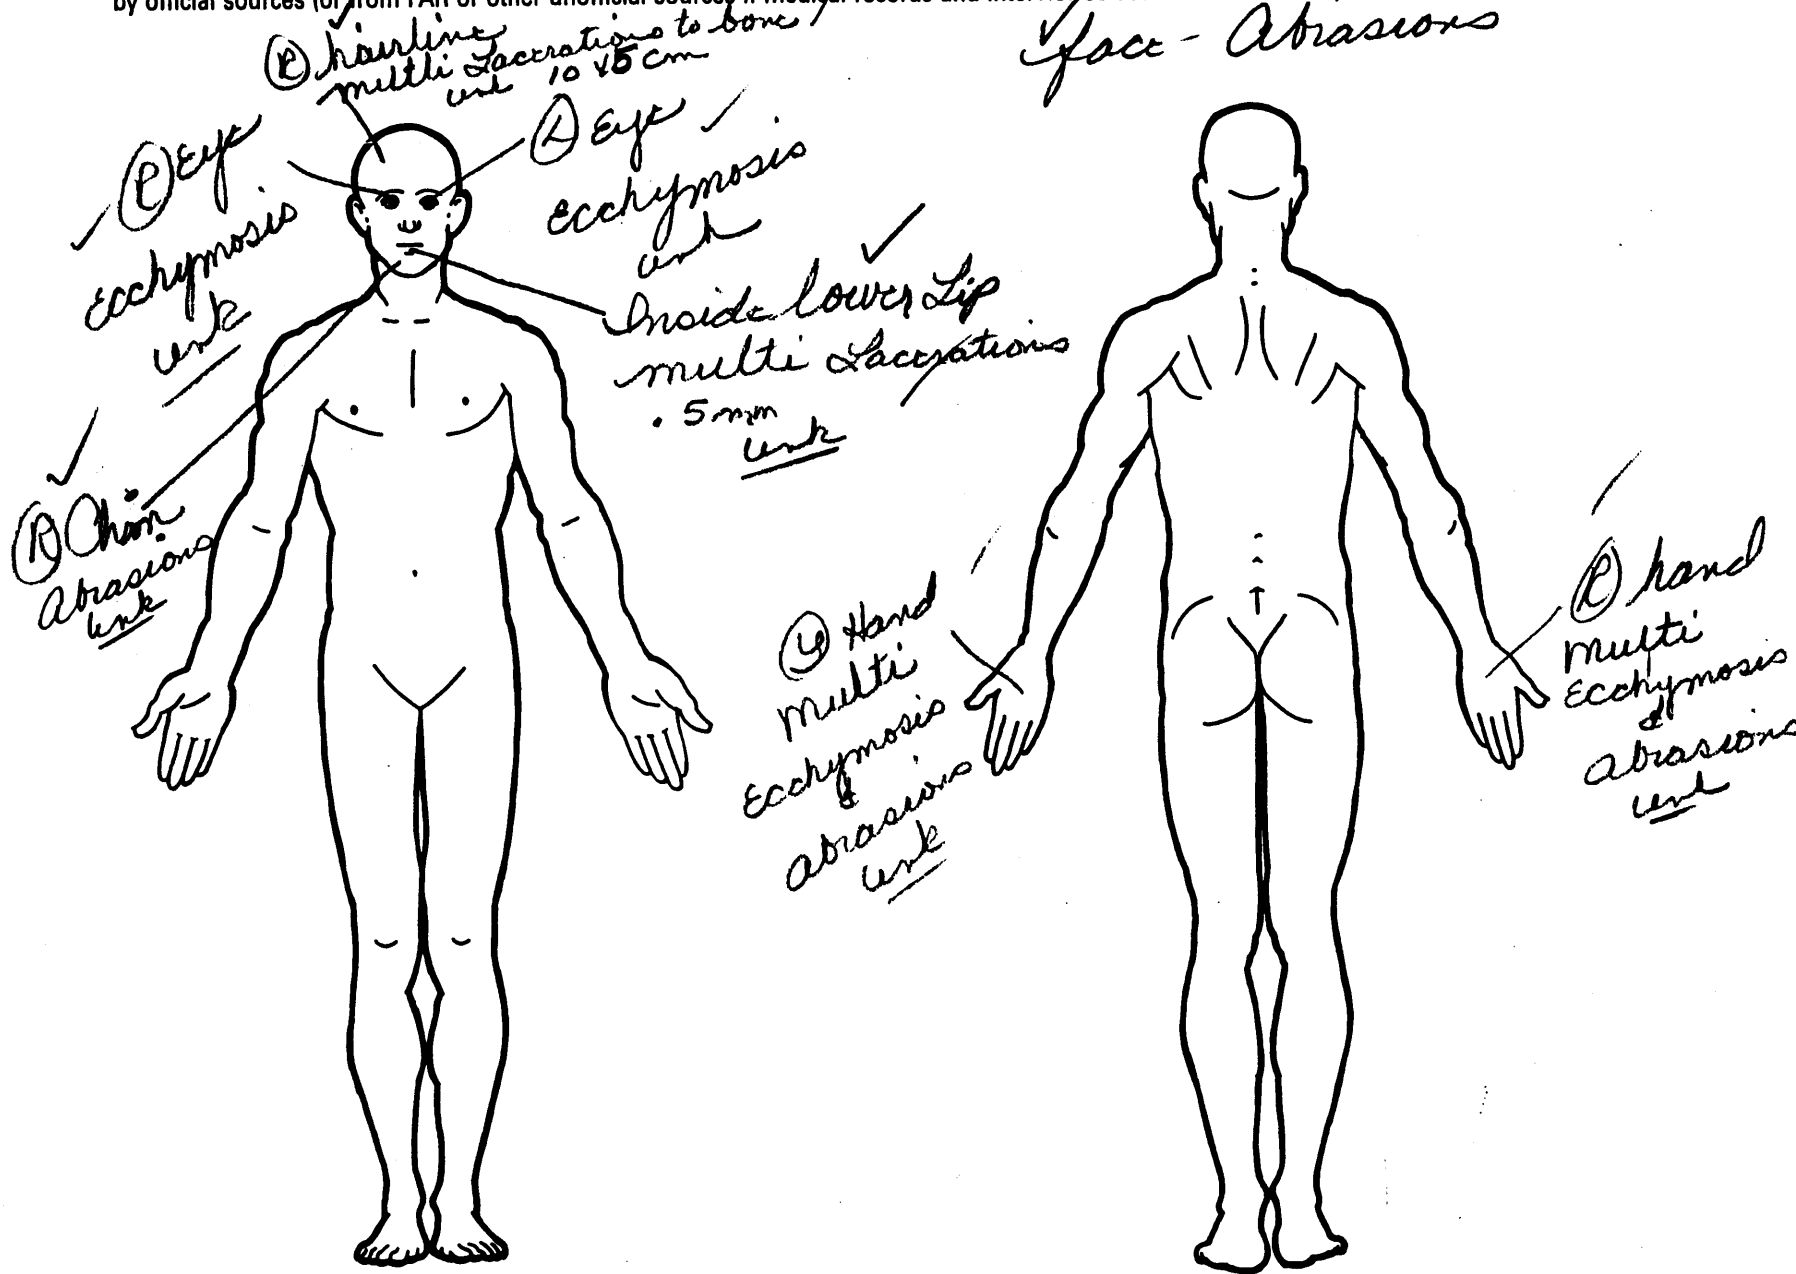 by official sources (or from PAR or other unofficial sources if medical records and
face - Abrasions
Ⓡ hairline
multi Lacerations to bone
unk 10 x 5 cm
Ⓡ Eye
Ecchymosis
unk
Ⓛ Eye
Ecchymosis
unk
Inside lower Lip
multi Lacerations
. 5 mm
unk
Ⓡ Chin
Abrasions
unk
Ⓛ Hand
Multi
Ecchymosis
&
Abrasions
unk
Ⓡ hand
Multi
Ecchymosis
&
Abrasions
unk